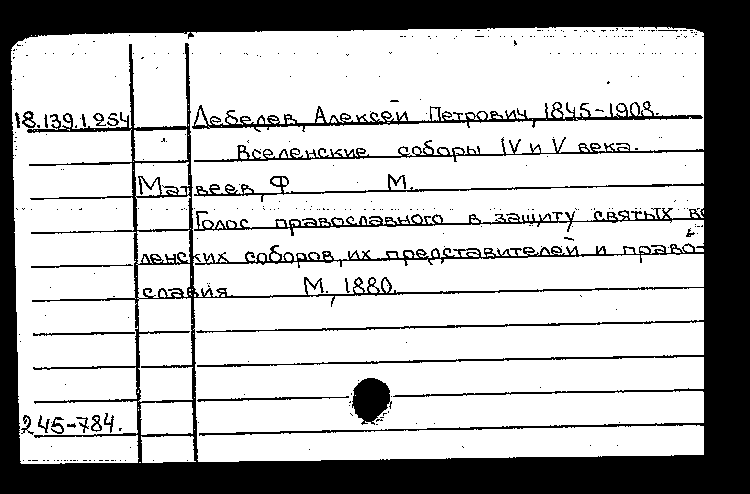 18.139.1.254 Лебедев, Алексей Петрович, 1845-1908.
Вселенские соборы IV и V века.
Матвеев, Ф. М.
Голос православного в защиту святых все
ленских соборов, их представителей и право-
славия. М., 1880.
245-784.